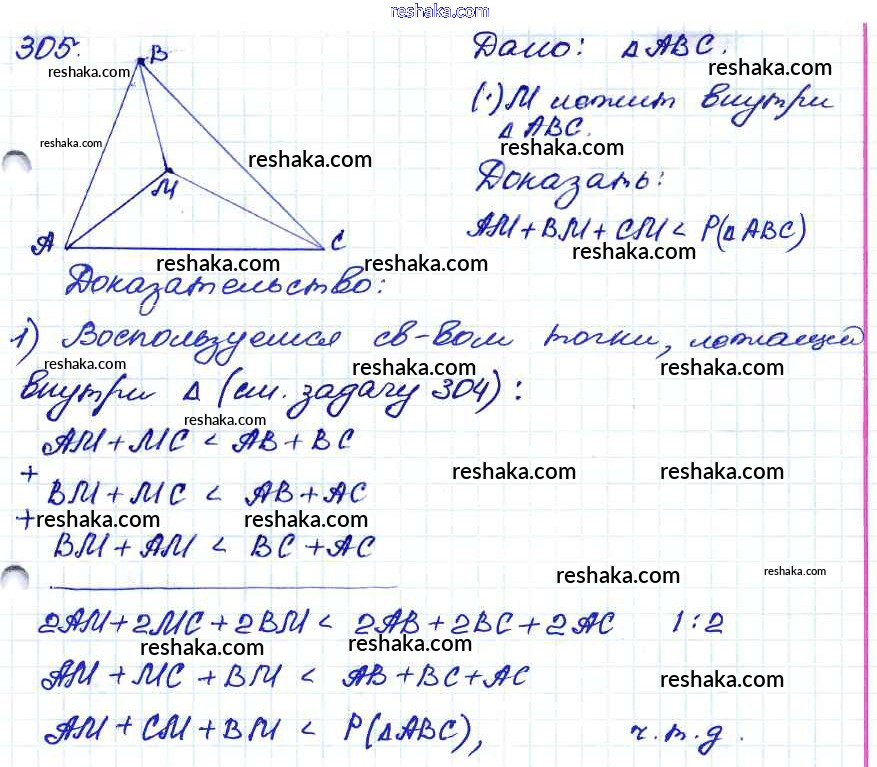 reshaka.com
305.
B
reshaka.com
reshaka.com
reshaka.com
M
A
C
Дано: △ABC.
reshaka.com
(·) M лежит внутри
△ABC.
reshaka.com
Доказать:
AM + BM + CM < P(△ABC)
reshaka.com reshaka.com reshaka.com
Доказательство:
1) Воспользуемся св-вом точки, лежащей
reshaka.com reshaka.com reshaka.com
внутри △ (см. задачу 304):
reshaka.com
AM + MC < AB + BC
+
reshaka.com reshaka.com
BM + MC < AB + AC
+
reshaka.com reshaka.com
BM + AM < BC + AC
reshaka.com reshaka.com
2AM + 2MC + 2BM < 2AB + 2BC + 2AC 1:2
reshaka.com reshaka.com
AM + MC + BM < AB + BC + AC
reshaka.com
AM + CM + BM < P(△ABC), ч.т.д.